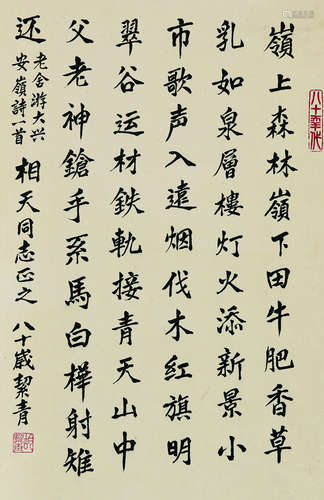 嶺上森林嶺下田牛肥香草
乳如泉層樓灯火添新景小
市歌声入遠烟伐木紅旗明
翠谷运材鉄軌接青天山中
父老神鎗手系馬白樺射雉
还
老舍游大兴
安嶺詩一首
相天同志正之
八十歲絜青
八十年代